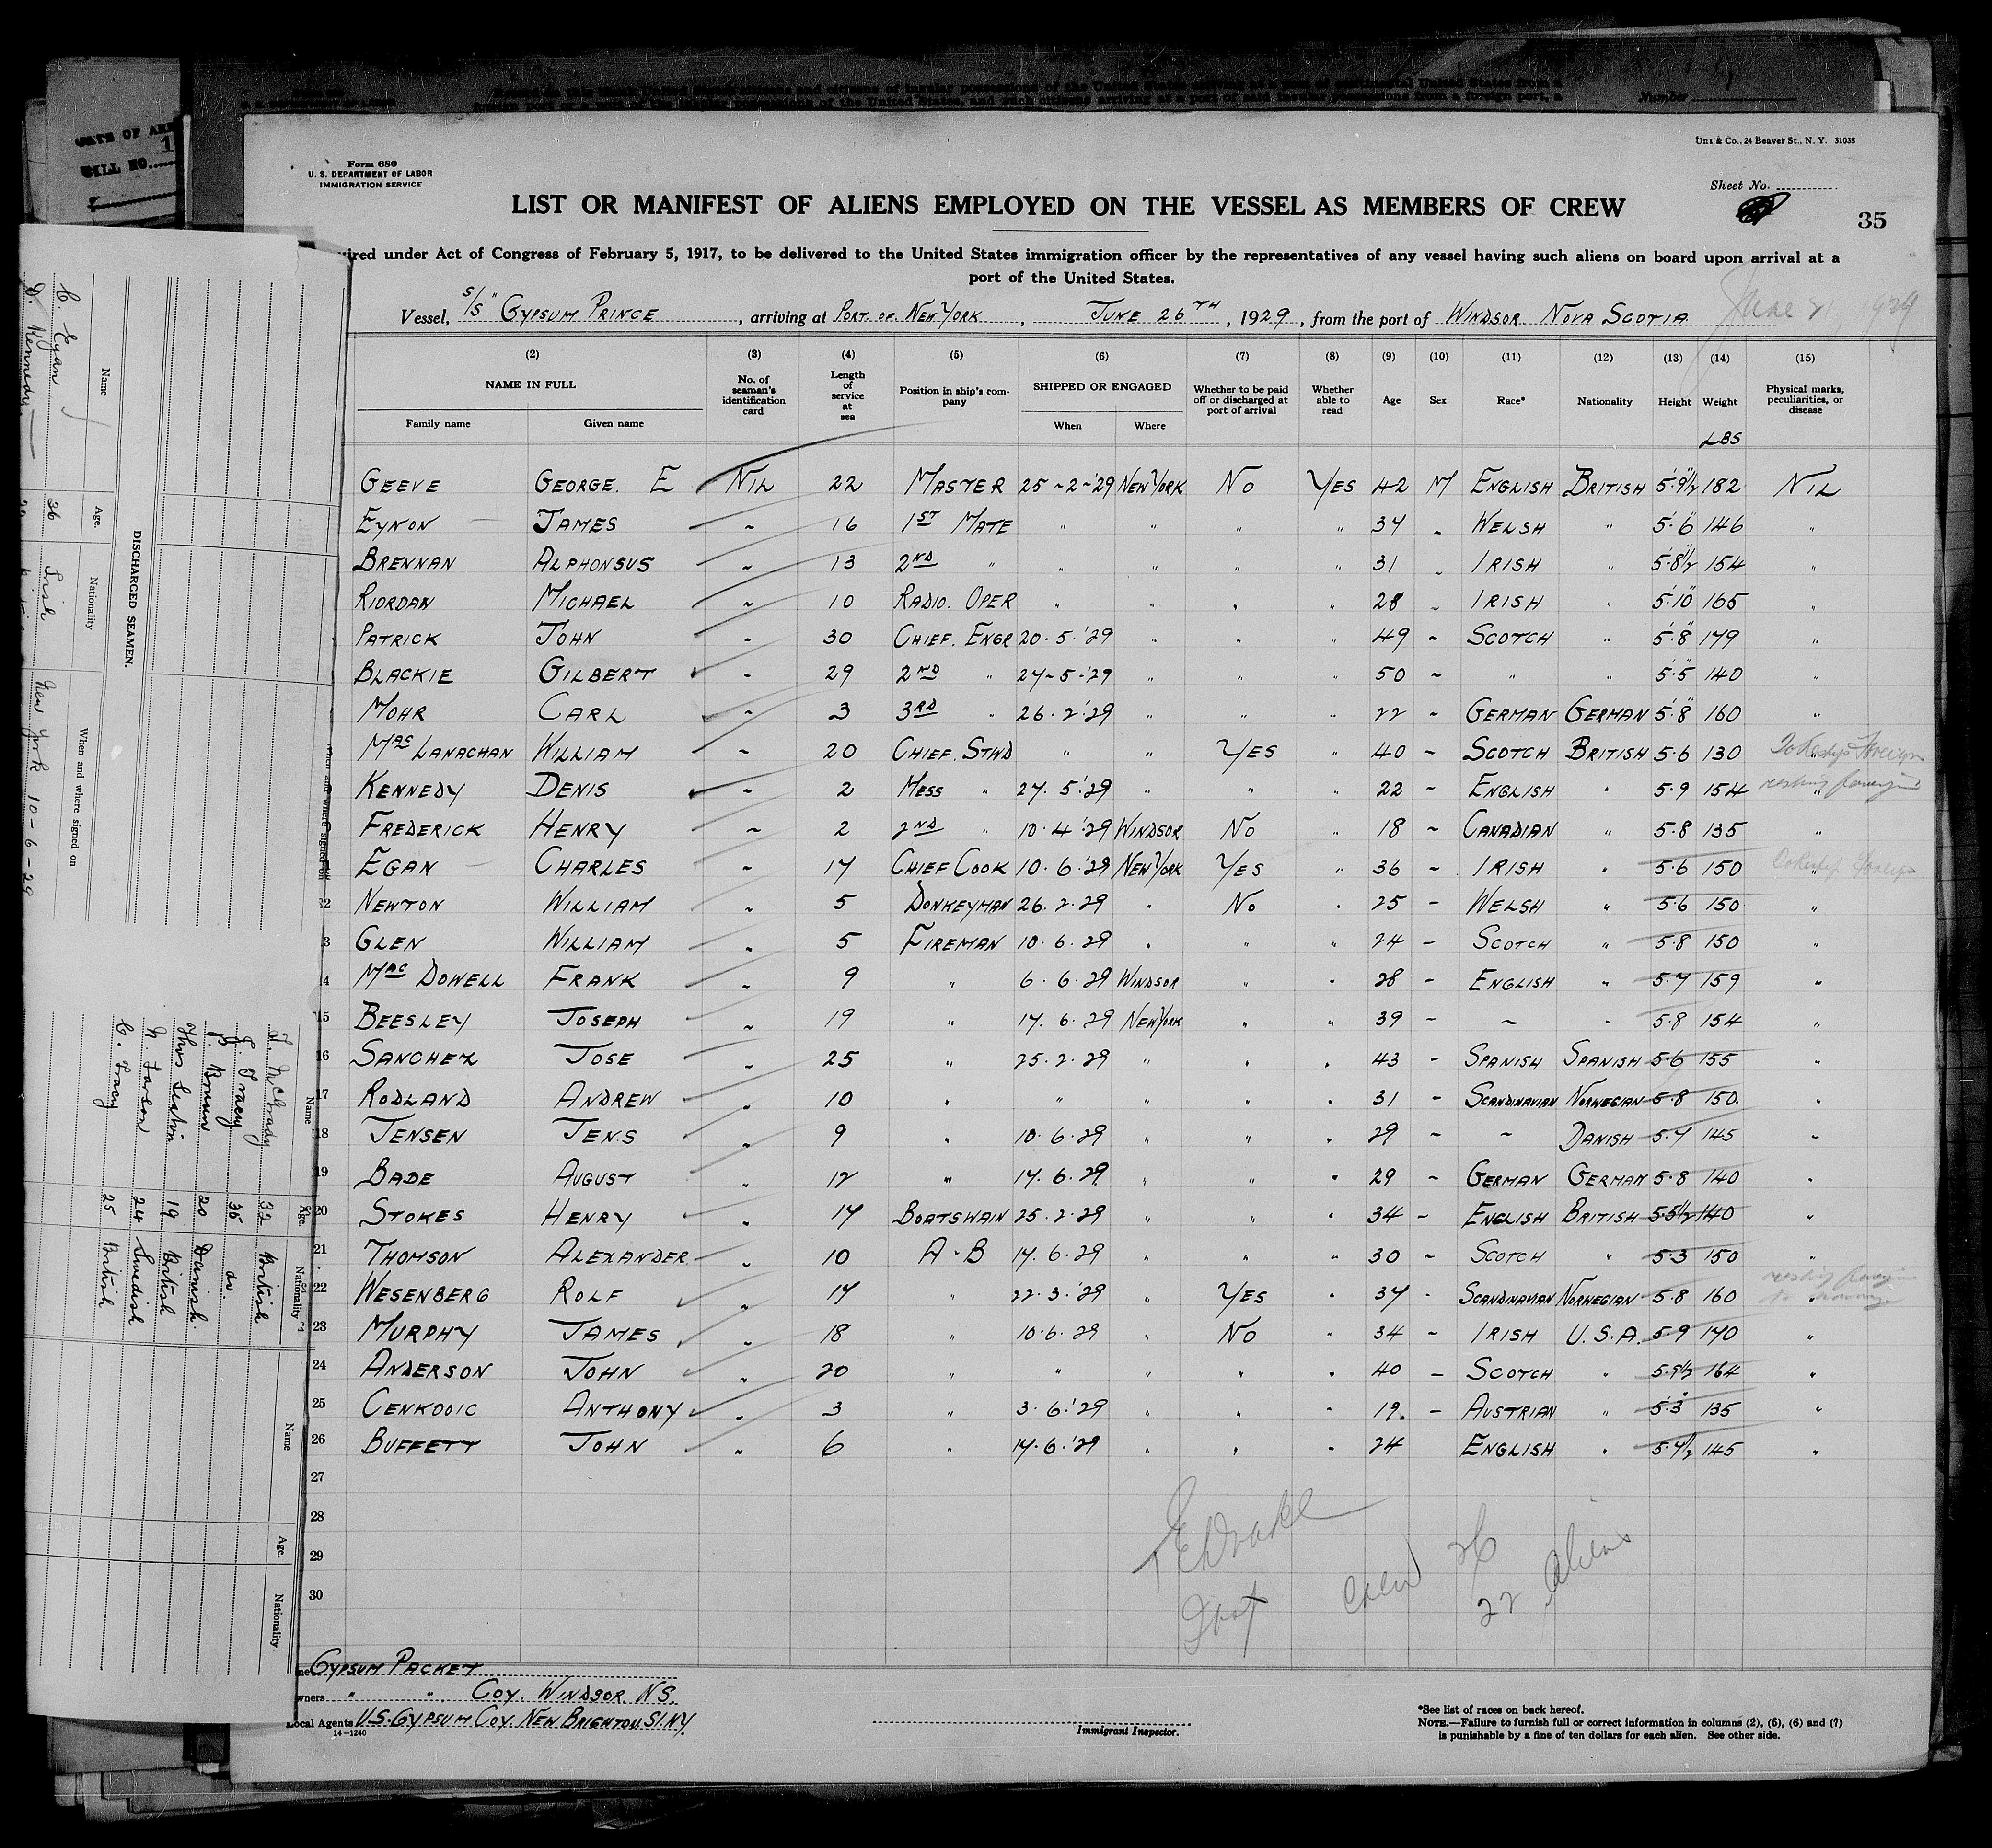 DATE OF ARR
BILL NO. 1
Number
Form 680
U. S. DEPARTMENT OF LABOR
IMMIGRATION SERVICE
Uns & Co., 24 Beaver St., N. Y. 31038
Sheet No.
LIST OR MANIFEST OF ALIENS EMPLOYED ON THE VESSEL AS MEMBERS OF CREW
35
uired under Act of Congress of February 5, 1917, to be delivered to the United States immigration officer by the representatives of any vessel having such aliens on board upon arrival at a
port of the United States.
Vessel, S/S "GYPSUM PRINCE , arriving at PORT OF NEW YORK , JUNE 26TH , 1929 , from the port of WINDSOR NOVA SCOTIA
(2) (3) (4) (5) (6) (7) (8) (9) (10) (11) (12) (13) (14) (15)
NAME IN FULL No. of seaman's identification card Length of service at sea Position in ship's company SHIPPED OR ENGAGED Whether to be paid off or discharged at port of arrival Whether able to read Age Sex Race* Nationality Height Weight Physical marks, peculiarities, or disease
Family name Given name When Where
LBS
GEEVE GEORGE. E NIL 22 MASTER 25-2-'29 NEW YORK NO YES 42 M ENGLISH BRITISH 5'9"1/2 182 NIL
EYNON JAMES " 16 1ST MATE " " " " 34 " WELSH " 5'6" 146 "
BRENNAN ALPHONSUS " 13 2ND " " " " " 31 " IRISH " 5'8"1/2 154 "
RIORDAN MICHAEL " 10 RADIO. OPER " " " " 28 " IRISH " 5'10" 165 "
PATRICK JOHN " 30 CHIEF. ENGR 20.5.'29 " " " 49 " SCOTCH " 5'8" 179 "
BLACKIE GILBERT " 29 2ND " 27-5-'29 " " " 50 " " " 5'5" 140 "
MOHR CARL " 3 3RD " 26.2.'29 " " " 22 " GERMAN GERMAN 5'8" 160 "
MAC LANACHAN WILLIAM " 20 CHIEF. STWD " " YES " 40 " SCOTCH BRITISH 5.6 130
KENNEDY DENIS " 2 MESS " 27.5.'29 " " " 22 " ENGLISH " 5.9 154
FREDERICK HENRY " 2 2ND " 10.4.'29 WINDSOR NO " 18 " CANADIAN " 5.8 135 "
EGAN CHARLES " 17 CHIEF COOK 10.6.'29 NEW YORK YES " 36 " IRISH " 5.6 150
NEWTON WILLIAM " 5 DONKEYMAN 26.2.29 " NO " 25 " WELSH " 5.6 150 "
GLEN WILLIAM " 5 FIREMAN 10.6.29 " " " 24 " SCOTCH " 5.8 150 "
MAC DOWELL FRANK " 9 " 6.6.29 WINDSOR " " 28 " ENGLISH " 5.7 159 "
15 BEESLEY JOSEPH " 19 " 17.6.29 NEW YORK " " 39 " " " 5.8 154 "
16 SANCHEZ JOSE " 25 " 25.2.29 " " " 43 " SPANISH SPANISH 5.6 155 "
17 RODLAND ANDREW " 10 " " " " " 31 " SCANDINAVIAN NORWEGIAN 5.8 150. "
18 JENSEN JENS " 9 " 10.6.29 " " " 29 " " DANISH 5.7 145 "
19 BADE AUGUST " 12 " 17.6.29 " " " 29 " GERMAN GERMAN 5.8 140 "
20 STOKES HENRY " 17 BOATSWAIN 25.2.29 " " " 34 " ENGLISH BRITISH 5.5 1/2 140 "
21 THOMSON ALEXANDER " 10 A-B 17.6.29 " " " 30 " SCOTCH " 5.3 150 "
22 WESENBERG ROLF " 17 " 22.3.'29 " YES " 37 " SCANDINAVIAN NORWEGIAN 5.8 160
23 MURPHY JAMES " 18 " 10.6.29 " NO " 34 " IRISH U.S.A. 5.9 170 "
24 ANDERSON JOHN " 20 " " " " " 40 " SCOTCH " 5.9 1/2 164 "
25 CENKODIC ANTHONY " 3 " 3.6.'29 " " " 19. " AUSTRIAN " 5.3 135 "
26 BUFFETT JOHN " 6 " 17.6.'29 " " " 24 ENGLISH " 5.7 1/2 145 "
27
28
29
30
Crew 26
22 Aliens
GYPSUM PACKET
wners " " COY. WINDSOR. N.S.
Local Agents U.S. GYPSUM COY. NEW BRIGHTON. SI. NY.
14-1240
Immigrant Inspector.
*See list of races on back hereof.
NOTE.—Failure to furnish full or correct information in columns (2), (5), (6) and (7)
is punishable by a fine of ten dollars for each alien. See other side.
DISCHARGED SEAMEN.
Name Age. Nationality When and where signed on
C. Egan 36 Irish New York 10-6-29
D. Kennedy
Name Age. Nationality
J. McGrady 32 British
J. Tracy 35 do.
Brunn 20 Danish.
Thos Sexton 19 British
N. Larson 24 Swedish
C. Tracy 25 British
Name Age. Nationality